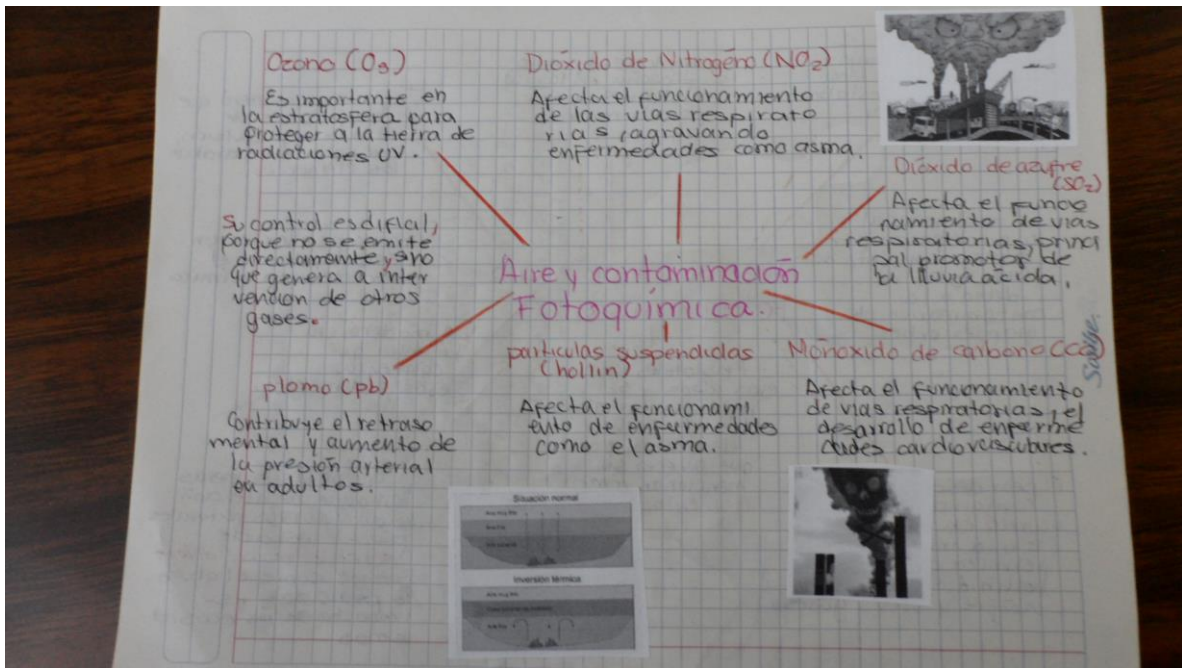 Ozono (O₃)
Es importante en
la estratosfera para
proteger a la tierra de
radiaciones UV.
Su control es dificial,
porque no se emite
directamente y sino
que genera a inter
vención de otros
gases.
Dióxido de Nitrogéno (NO₂)
Afecta el funcionamiento
de las vias respirato
rias, agravando
enfermedades como asma.
Dióxido de azufre
(SO₂)
Afecta el funcio
namiento de vias
respiratorias, princi
pal promotor de
la lluvia acida.
Aire y contaminación
Fotoquímica.
plomo (pb)
Contribuye el retraso
mental y aumento de
la presión arterial
en adultos.
particulas suspendidas
(hollin)
Afecta el funcionami
ento de enfermedades
como el asma.
Monóxido de carbono
Afecta el funcionamiento
de vias respiratorias, el
desarrollo de enferme
dades cardiovasculares.
Situación normal
Inversión térmica